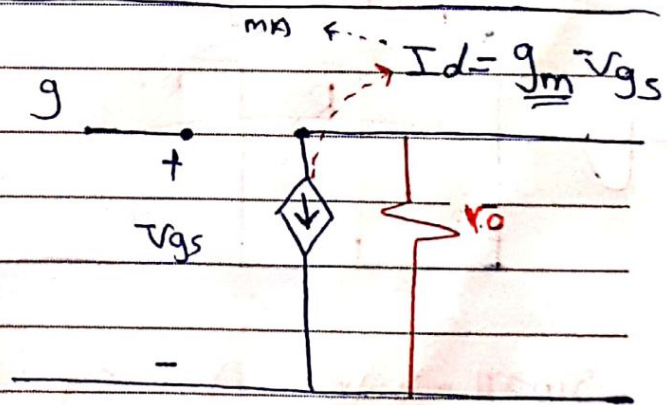 mA
Id = gm Vgs
g
+
Vgs
ro
-